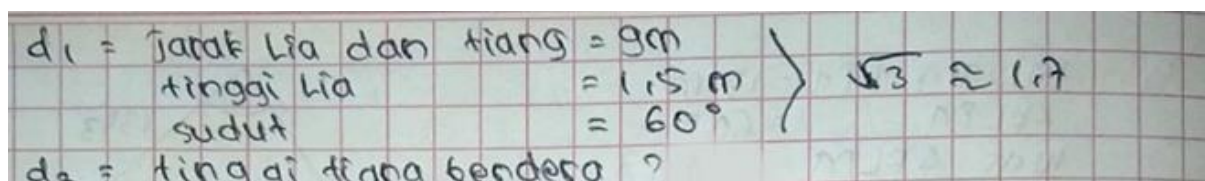 d1 = jarak Lia dan tiang = 9m
tinggi Lia = 1,5 m
sudut = 60° } √3 ≈ 1,7
d2 = tinggi tiang bendera ?